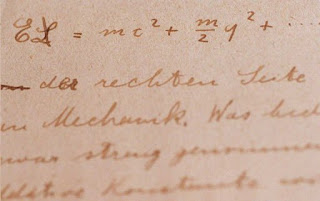 EL = mc² + m/2 q² + ....
der rechten Seite
in Mechanik. Was bed
zwar streng genommen
additive Konstante